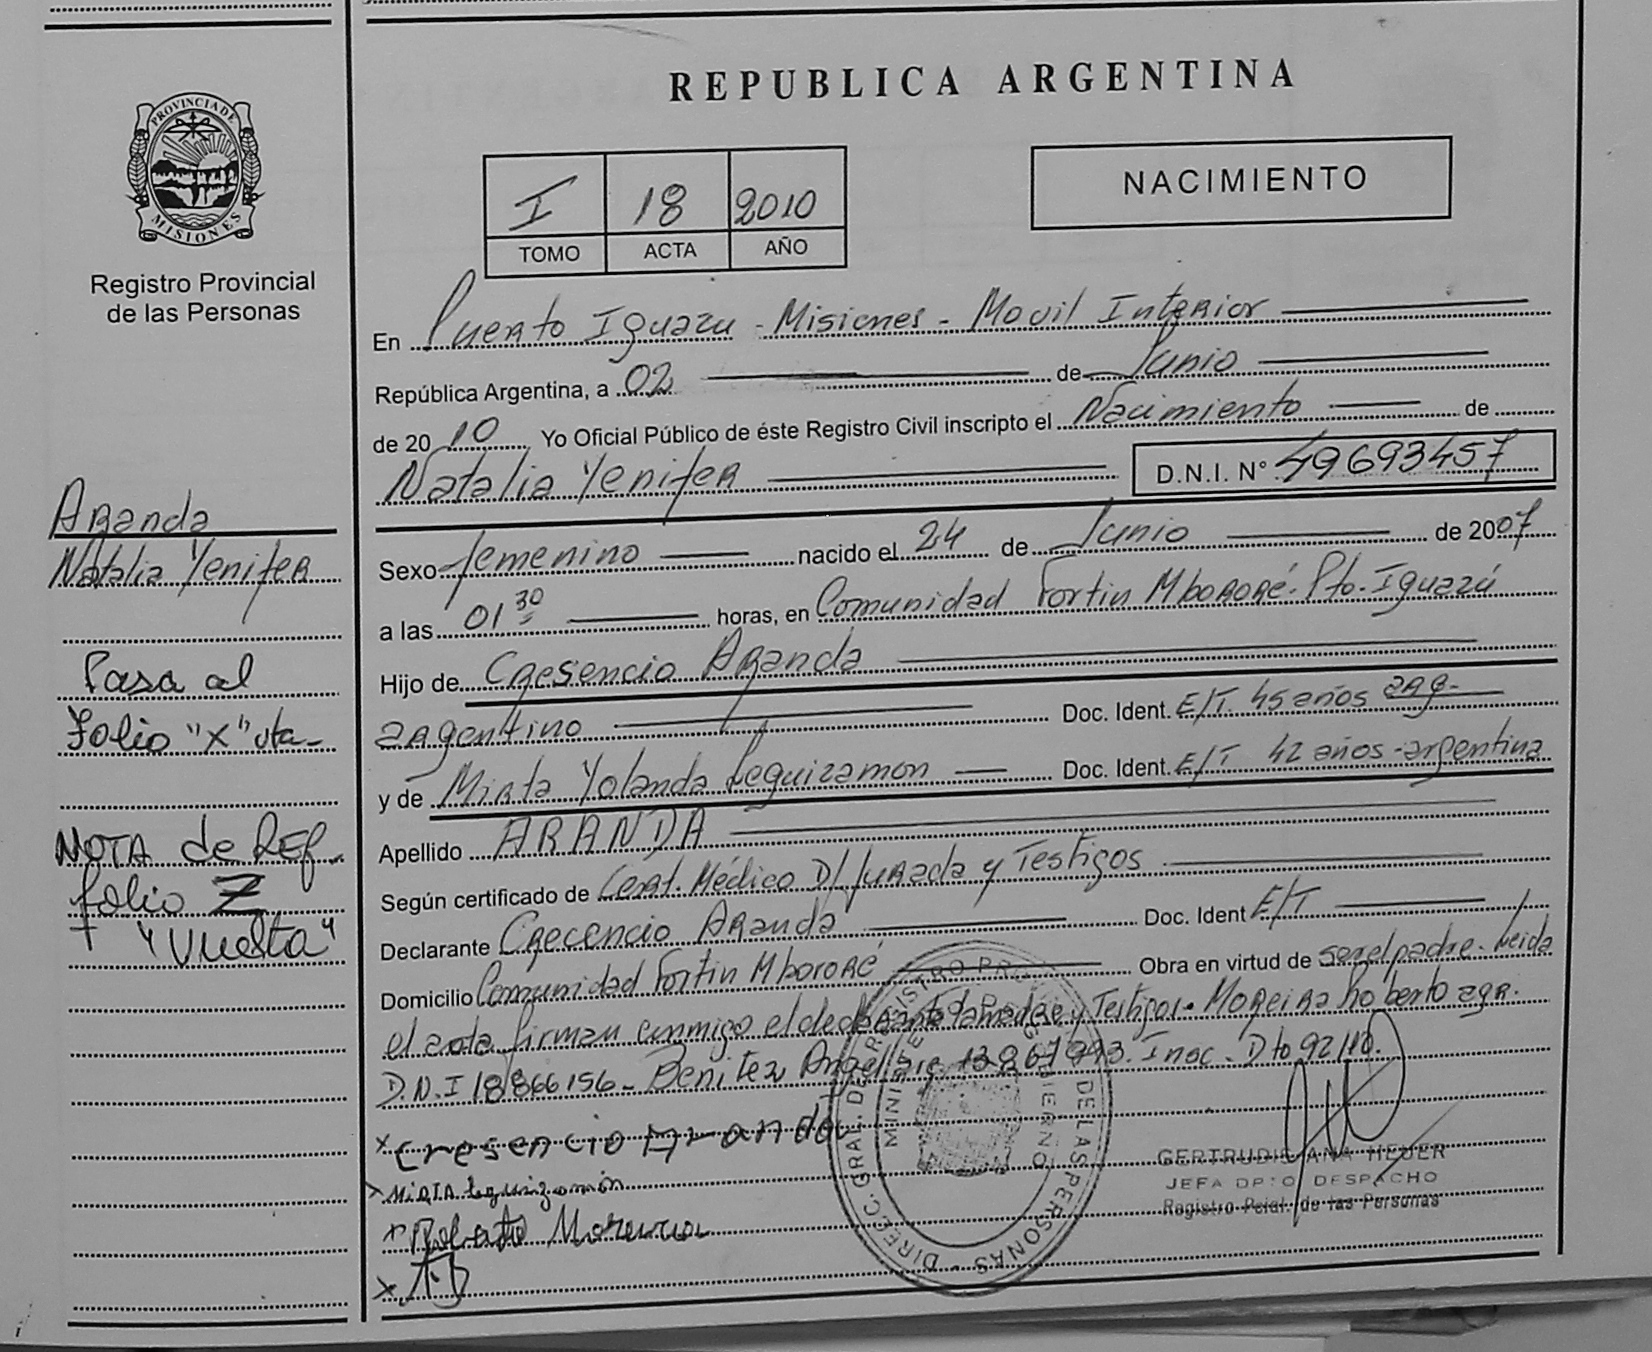 REPUBLICA ARGENTINA
PROVINCIA DE
MISIONES
Registro Provincial
de las Personas
I 18 2010
TOMO ACTA AÑO
NACIMIENTO
En Puerto Iguazu - Misiones - Movil Interior
República Argentina, a 02 de Junio
de 2010 Yo Oficial Público de éste Registro Civil inscripto el Nacimiento de
Natalia Yenifer D.N.I. N° 49693457
Sexo femenino nacido el 24 de Junio de 2007
a las 01 30 horas, en Comunidad Fortin Mbororé. Pto. Iguazú
Hijo de Cresencio Aranda
argentino Doc. Ident. E/T. 45 años arg.
y de Mirta Yolanda Leguizamon Doc. Ident. E/T 42 años - argentina
Apellido ARANDA
Según certificado de Cert. Médico D/Jurada y Testigos
Declarante Crecencio Aranda Doc. Ident E/T
Domicilio Comunidad Fortin Mbororé Obra en virtud de ser el padre. Leida
el acta firman conmigo el declarante la madre y Testigos. Moreira Roberto agr.
D.N.I 18866156 - Benitez Angel Insc. Dto 92/10.
x Cresencio Aranda
x Mirta Leguizamón
x Roberto
x
Aranda
Natalia Yenifer
Pasa al
Folio "X" vta-
NOTA de REF
folio Z
"Vuelta"
DIREC. GRAL. DE REGISTRO PROV. DE LAS PERSONAS
GERTRUDIS ANA HEUER
JEFA DPTO DESPACHO
Registro Pcial. de las Personas